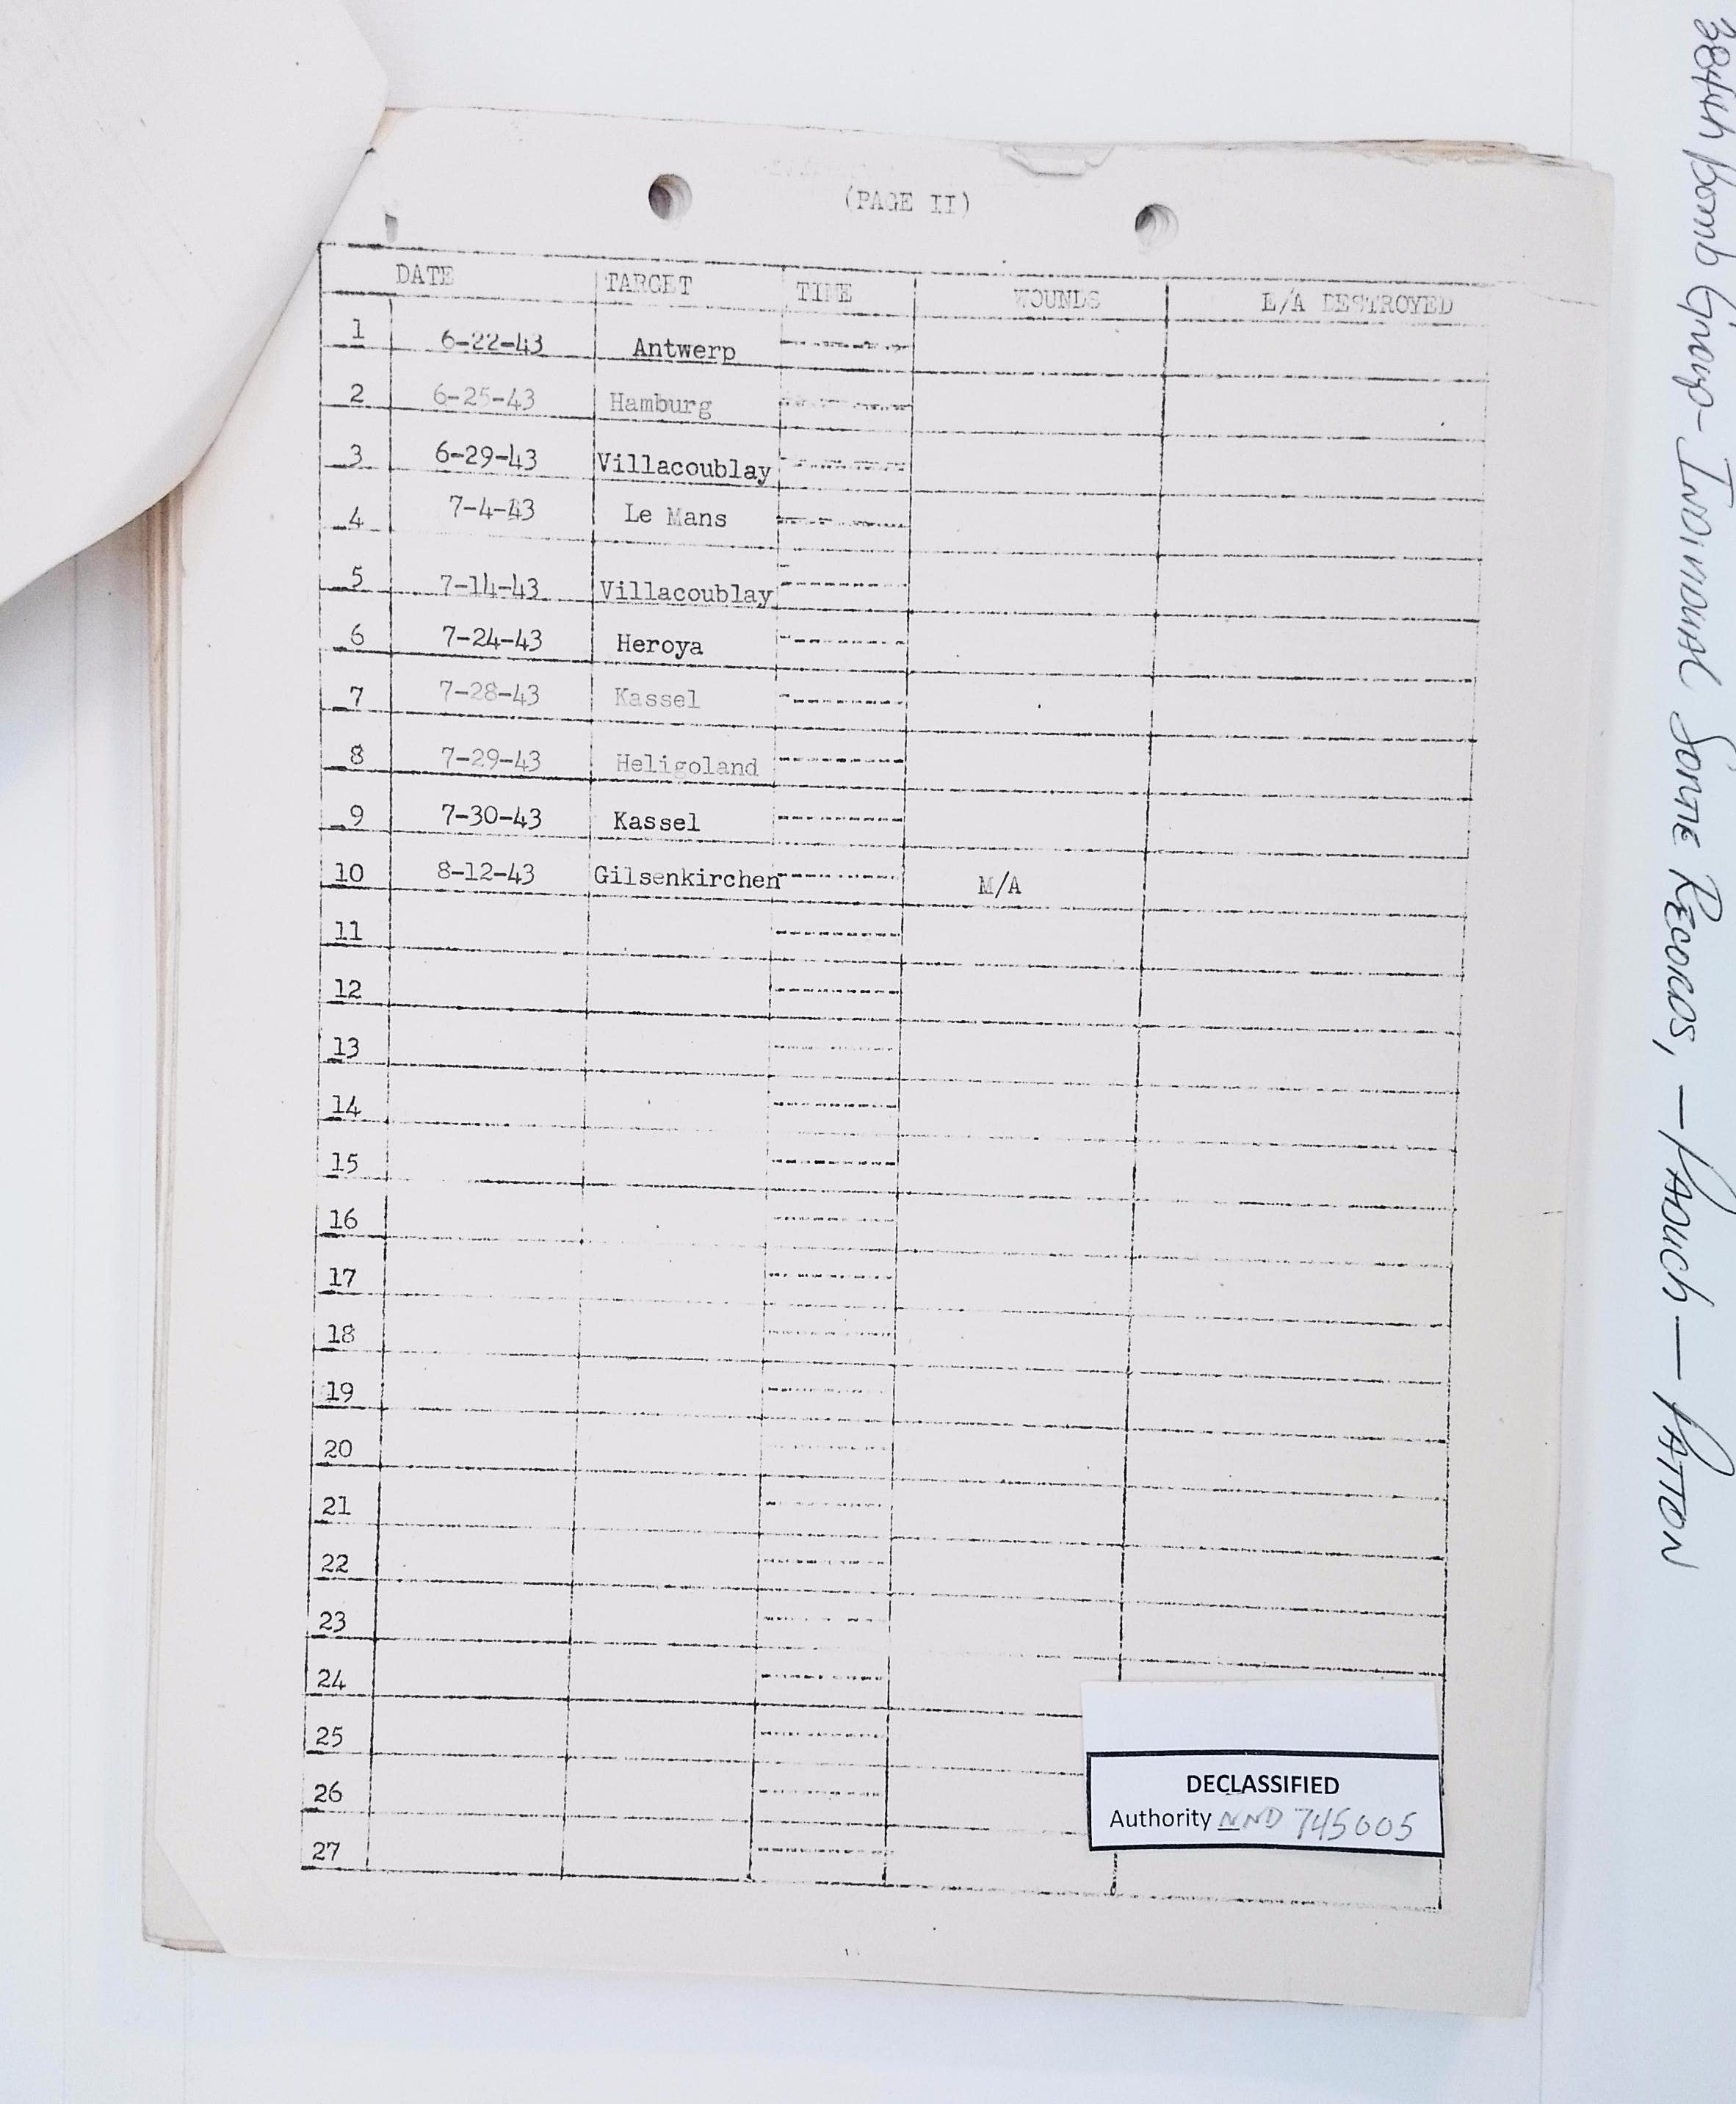 (PAGE II)
DATE TARGET TIME WOUNDS E/A DESTROYED
1 6-22-43 Antwerp
2 6-25-43 Hamburg
3 6-29-43 Villacoublay
4 7-4-43 Le Mans
5 7-14-43 Villacoublay
6 7-24-43 Heroya
7 7-28-43 Kassel
8 7-29-43 Heligoland
9 7-30-43 Kassel
10 8-12-43 Gilsenkirchen M/A
11
12
13
14
15
16
17
18
19
20
21
22
23
24
25
26
27
DECLASSIFIED
Authority NND 745005
384th Bomb Group - INDIVIDUAL SORTIE RECORDS, - PADUCH - PATTON